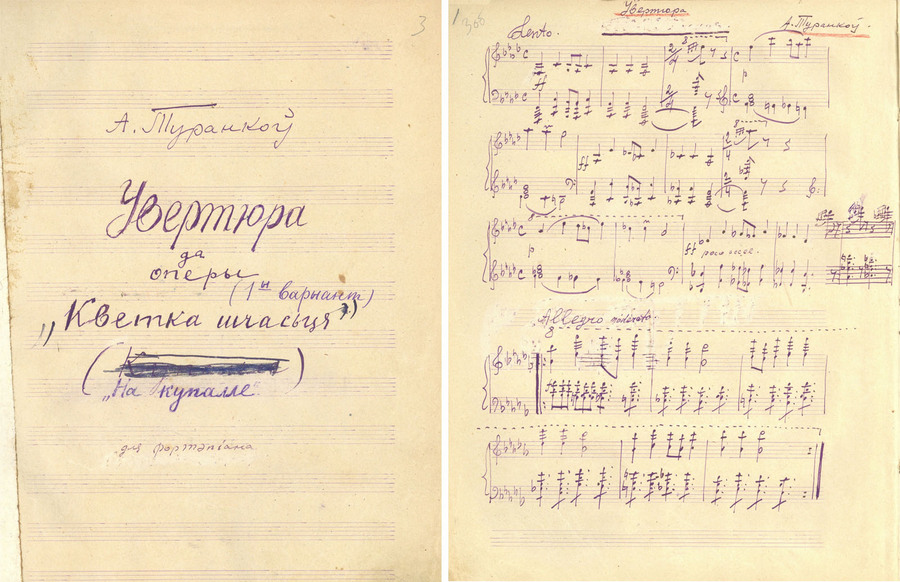 3
А. Туранкоў
Увертюра
да
оперы
(1ы варыянт)
„Кветка шчасьця”
(
)
„На купалле”
для фортэпіана
1
308
Увертюра
А. Туранкоў.
Lento.
8
ff
p
8
ff
p
ff poco acc.
Allegro moderato.
8